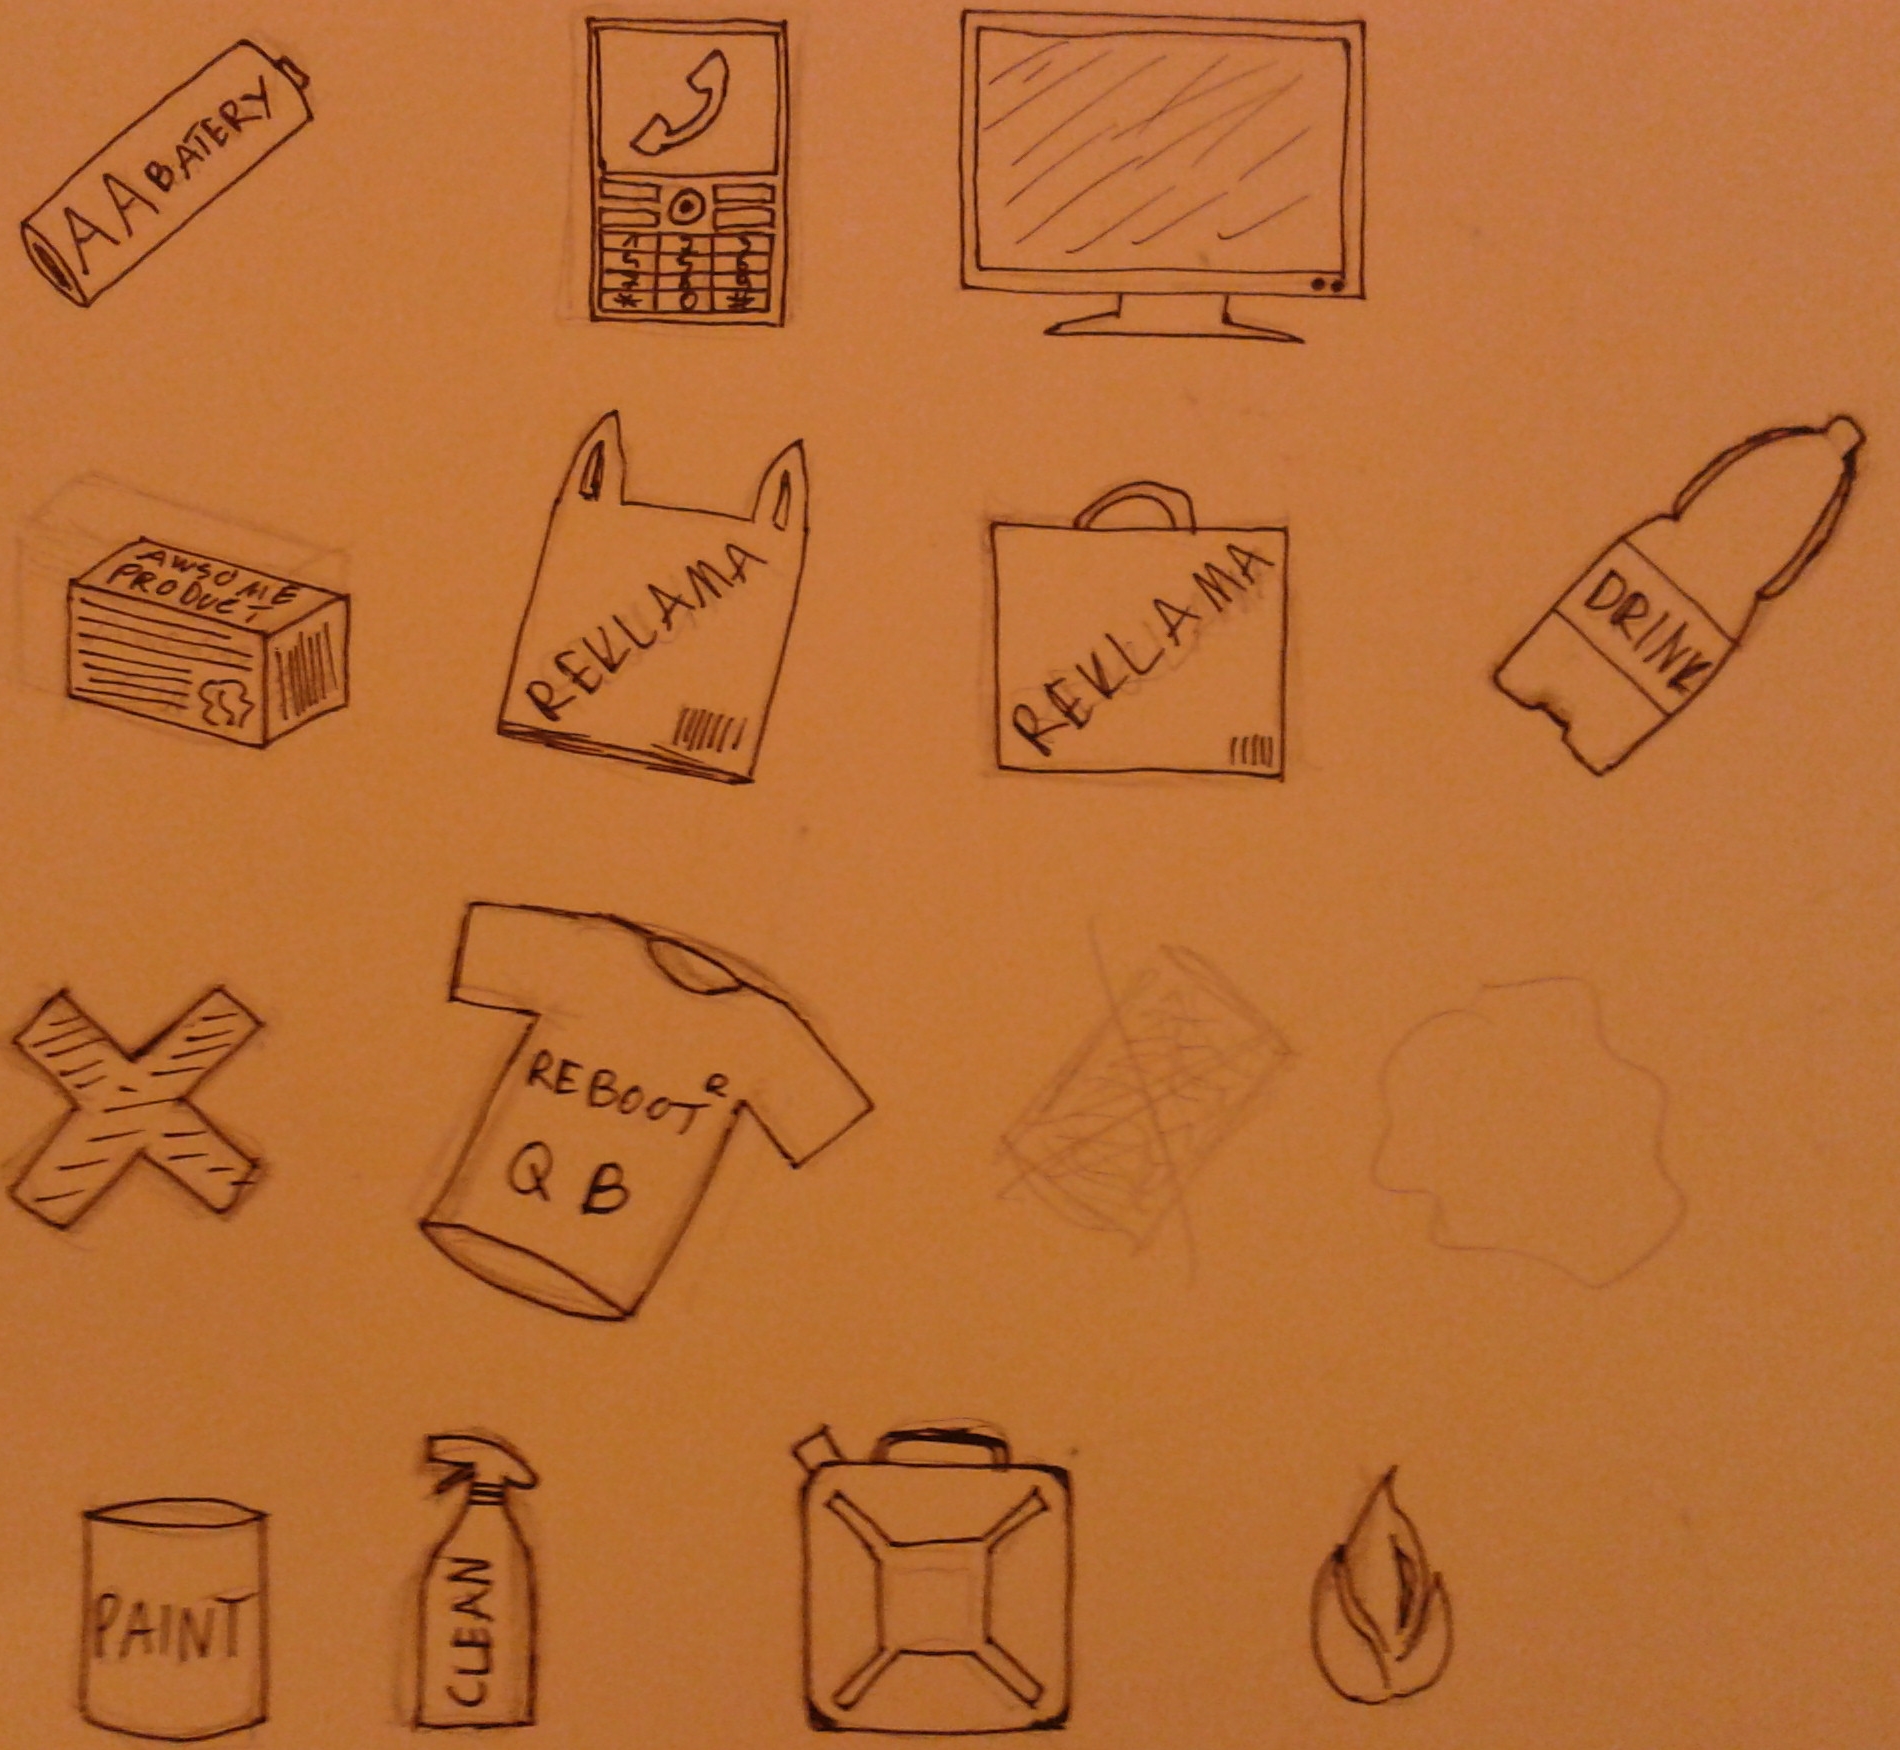 AA BATERY
AWSOME
PRODUCT
REKLAMA
REKLAMA
DRINK
REBOOT R
Q B
PAINT
CLEAN